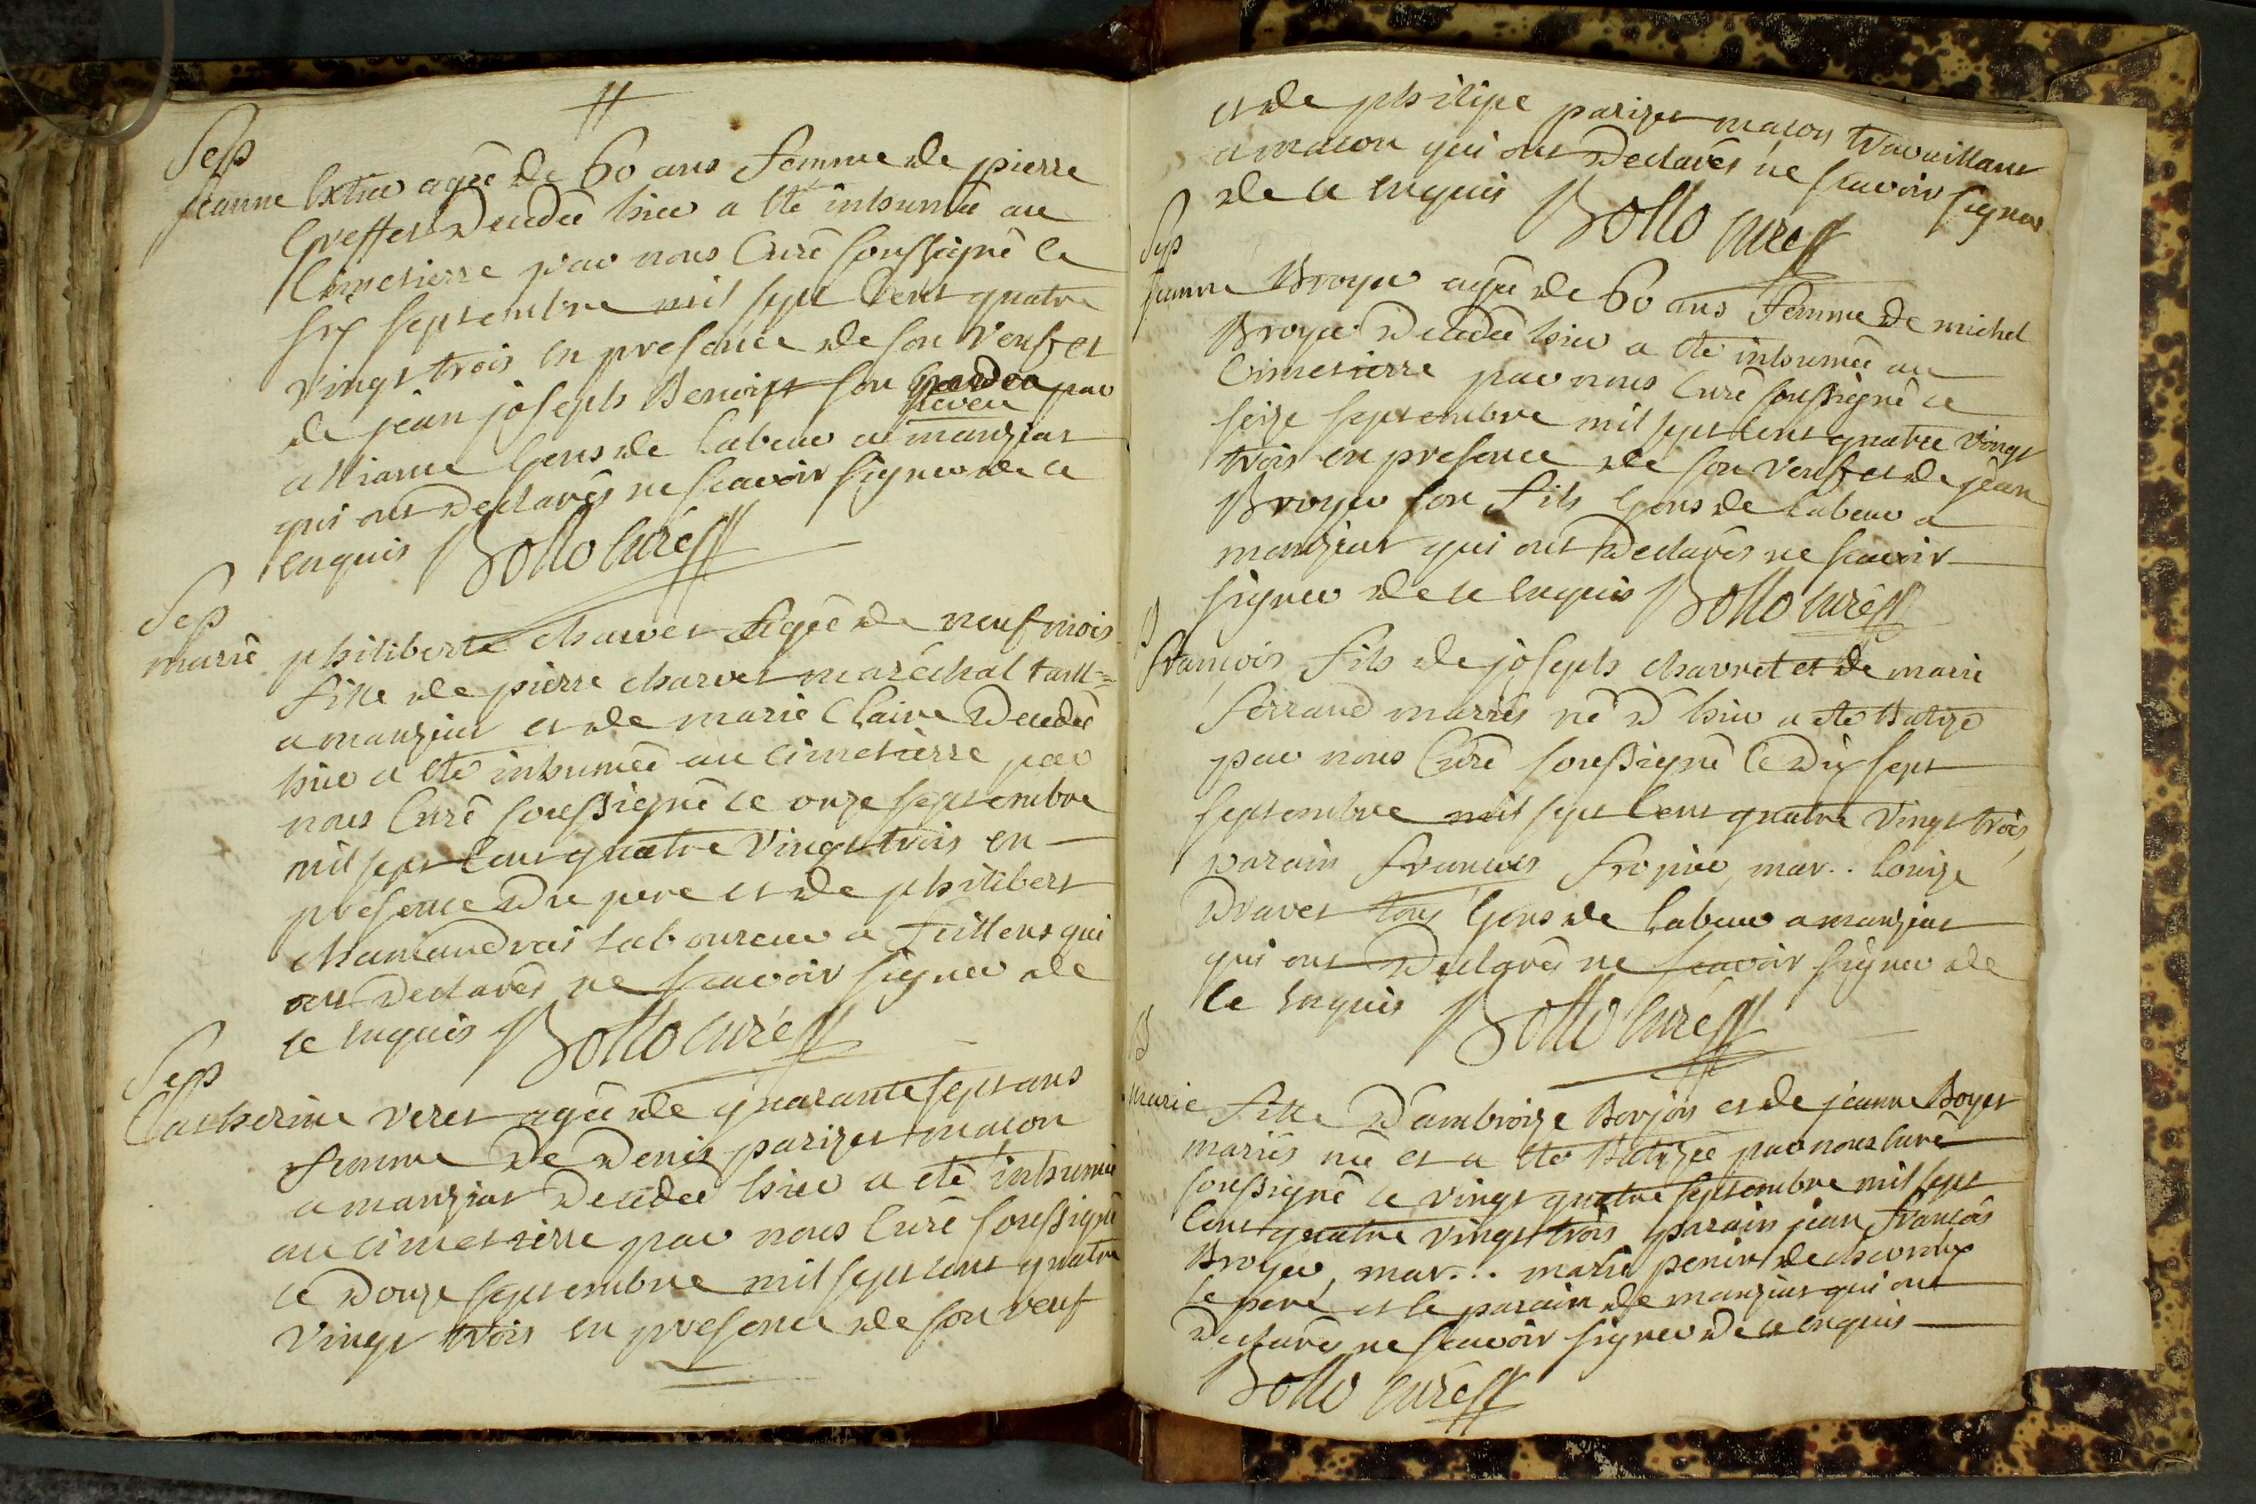 Sep
jeanne agée de 60 ans femme de pierre
Greffet Decedée hier a été inhumée au
Cimetierre par nous Curé soussigné le
six septembre mil sept Cent quatre
vingt trois en presence de son veuf et
de jean joseph Benoist son par
neveu
alliance Gens de Labeur a manziat
qui ont Declarés ne scavoir signer de ce
enquis Bollo Curé
Sep
marie philiberte charvet agée de neuf mois
fille de pierre charvet maréchal taill=
a manziat et de marie Claire Decedée
hier a été inhumée au cimetierre par
nous Curé soussigné le onze septembre
mil sept Cent quatre vingt trois en
presence Du pere et de philibert
laboureur a qui
ont Declarés ne scavoir signer de
ce enquis Bollo curé
Sep
Catherine veret agée de quarante sept ans
femme De Denis parizet macon
a manziat Decedée hier a été inhumée
au cimetierre par nous Curé soussigné
le Douze septembre mil sept cent quatre
vingt trois en presence de son veuf
et de philipe parizet macon travaillant
a macon qui ont Declarés ne scavoir signer
de ce enquis Bollo curé
Sep
jeanne Broyer agée de 60 ans femme De michel
Broyer Decedée hier a été inhumée au
Cimetierre par nous Curé soussigné le
seize septembre mil sept cent quatre vingt
trois en presence de son veuf et de jean
Broyer son fils Gens de labeur a
manziat qui ont Declarés ne scavoir
signer de ce enquis Bollo curé
B
francois fils de joseph chavret et de marie
ferrand mariés né D hier a été Batizé
par nous Curé soussigné le Dix sept
septembre mil sept Cent quatre vingt trois,
parain francois mar.. louize
Dravet tous Gens de labeur a manziat
qui ont Declarés ne scavoir signer de
ce enquis Bollo curé
B
marie fille D'ambroize Borjon et de jeanne Boyet
mariés née et a été Batizée par nous curé
soussigné le vingt quatre septembre mil sept
Cent quatre vingt trois parain jean francois
Broyer, mar... marie de chevroux
le pere et le parain de manziat qui ont
Declarés ne scavoir signer De ce enquis
Bollo curé